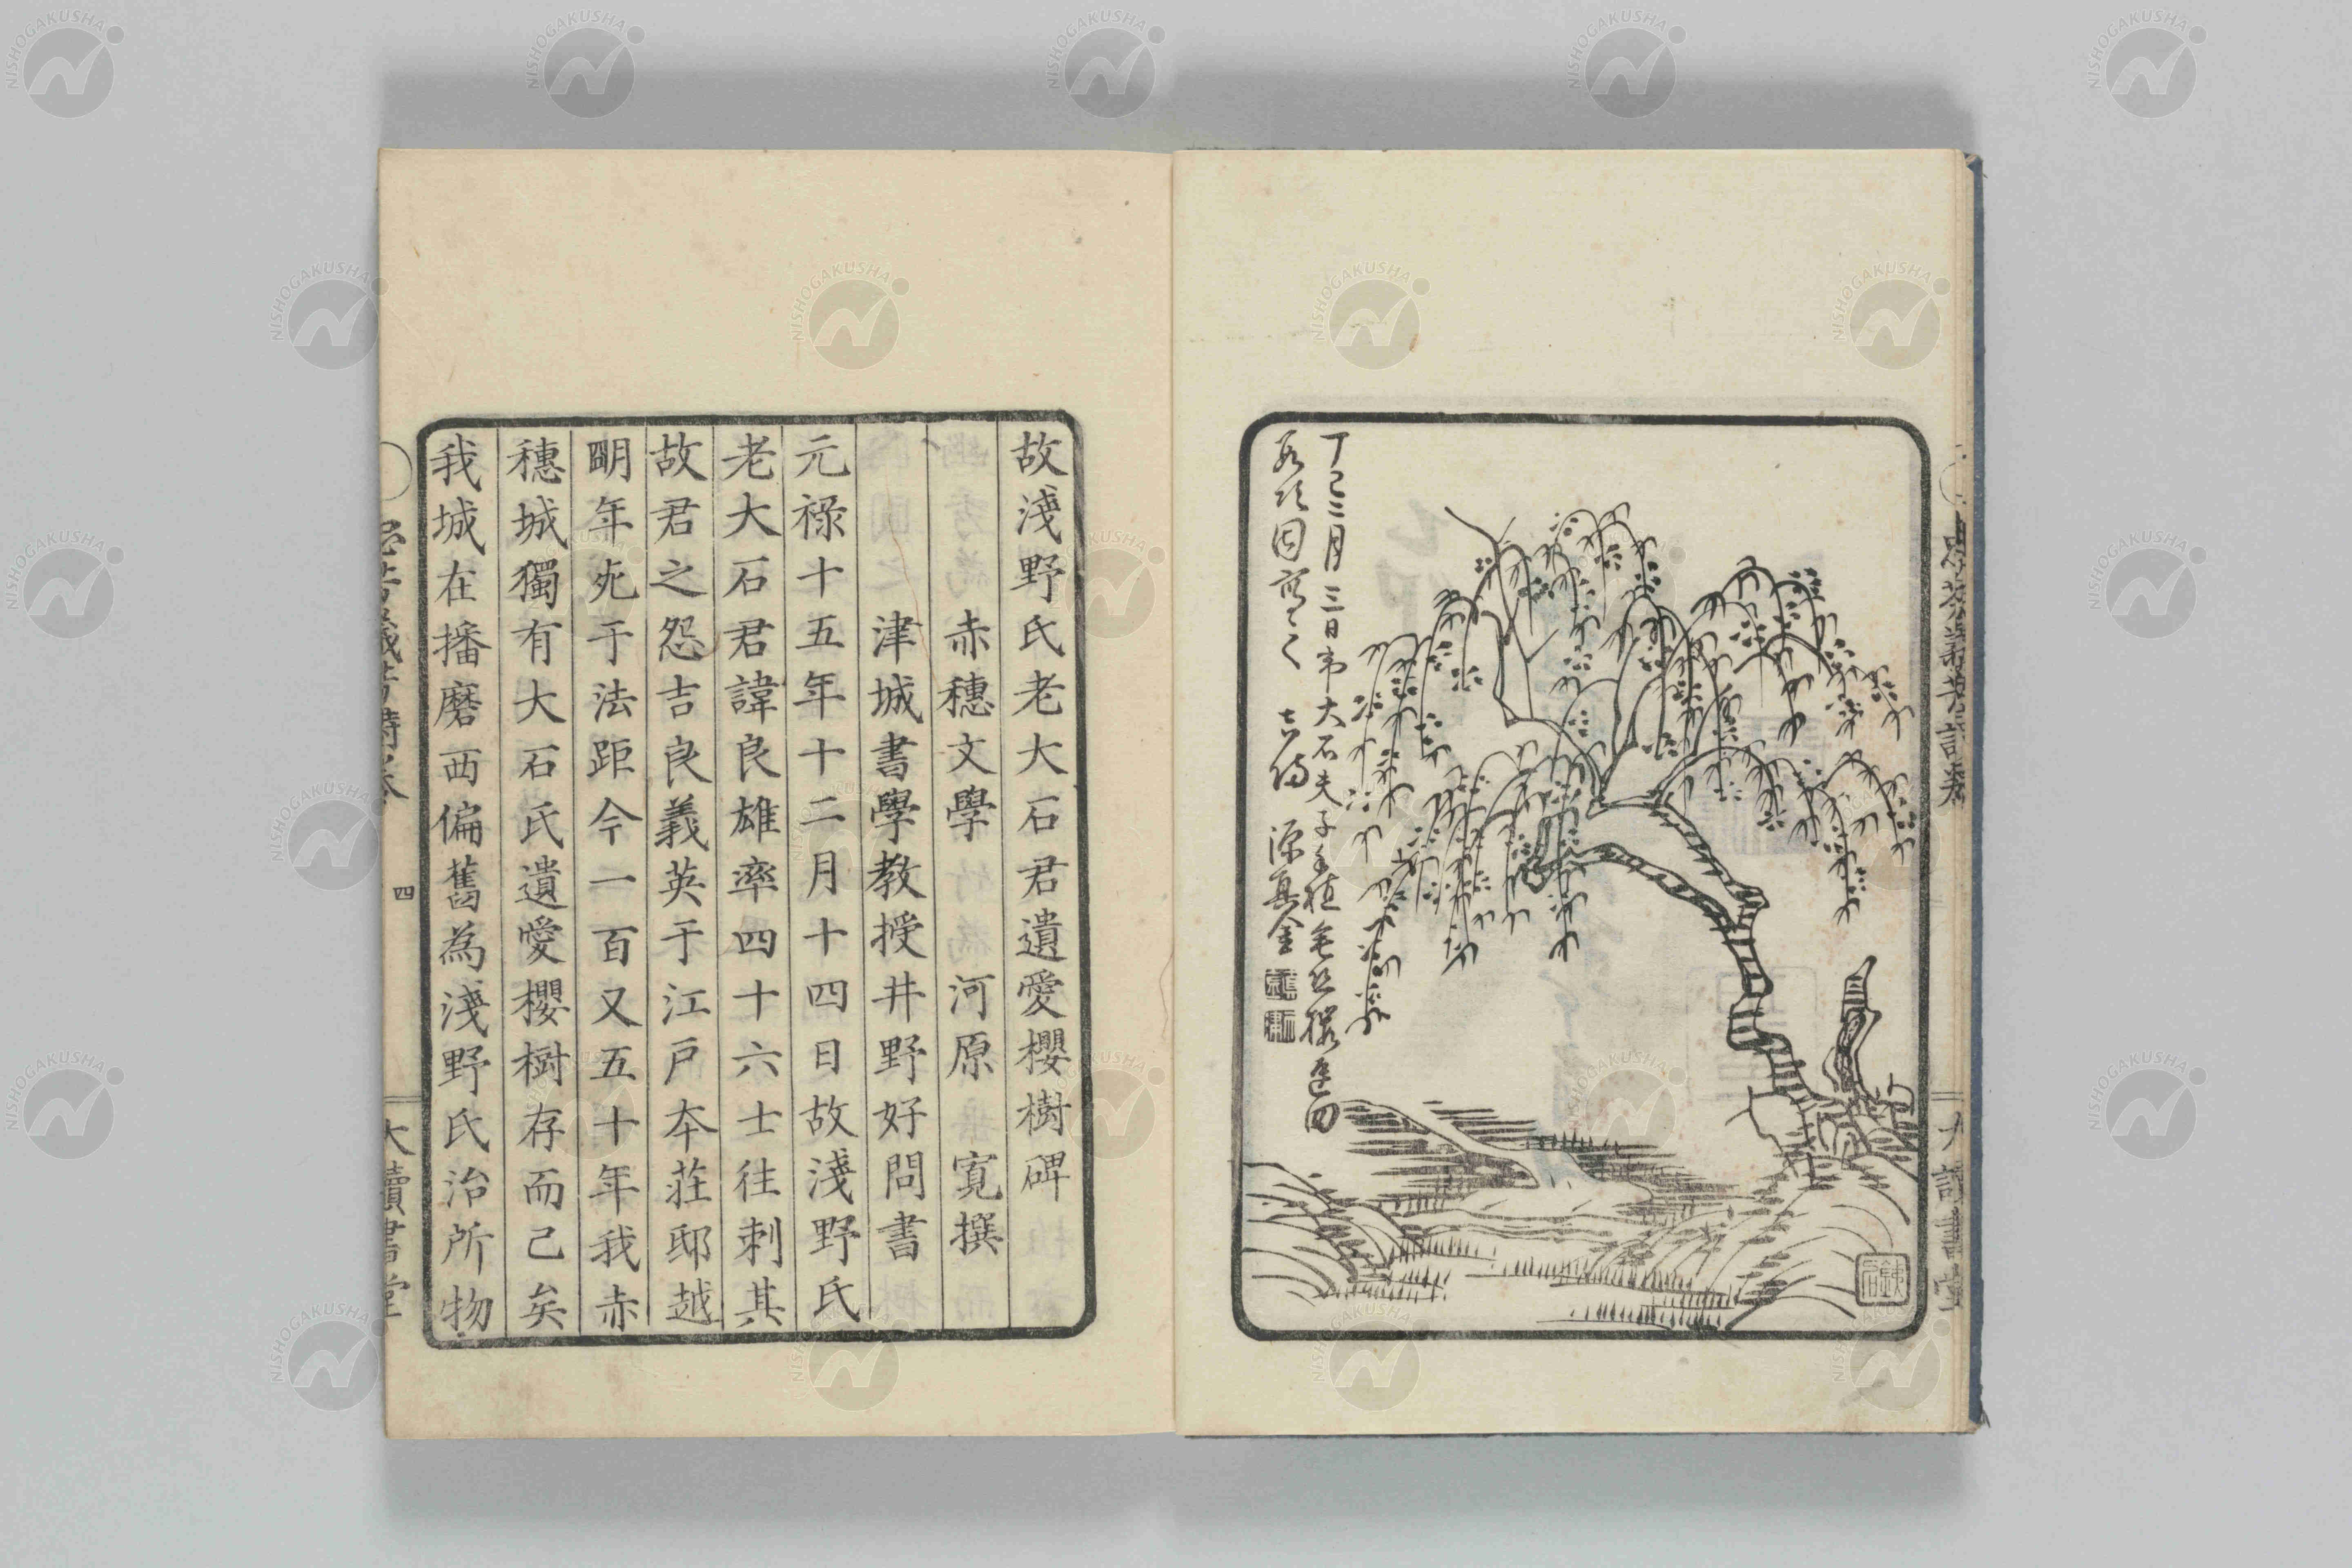 丁巳二月三日
大石夫子手植
故淺野氏老大石君遺愛櫻樹碑
赤穗文學 河原寬撰
津城書學教授井野好問書
元祿十五年十二月十四日故淺野氏
老大石君諱良雄率四十六士往刺其
故君之怨吉良義英于江戸夲莊邸越
明年死于法距今一百又五十年我赤
穗城獨有大石氏遺愛櫻樹存而已矣
我城在播磨西偏舊為淺野氏治所物
四
NISHOGAKUSHA